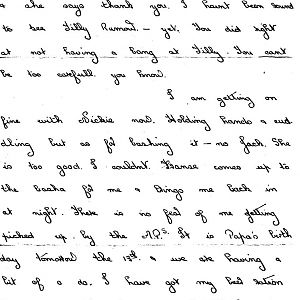 & she says thank you. I haunt been round
to see Tilly Rumor. — yet. You did right
at not having a bang at Tilly. You cant
be too carefull you know.
I am getting on
fine with Nickie now. Holding hands & cud
dling but as for banking it — no fack. She
is too good. I couldnt. Fransc comes up to
the backa for me & brings me back in
at night. There is no feal of me getting
picked up by the A.P.S. It is Papa's birth
day tomorrow the 13th. & we are having a
bit of a do. I have got my bed